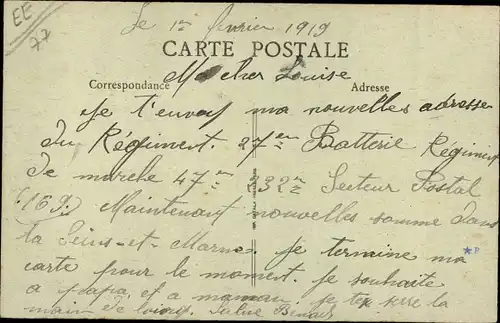 EE
77
Le 1er février 1919
CARTE POSTALE
Correspondance
Adresse
Ma cher Louise
Je t'envoy ma nouvelles adresse
du Régiment. 27em Batterie Régiment
de marche 47em 232em Secteur Postal
(169) Maintenant nouvelles somme dans
la Seins-et-Marne. je termine ma
carte pour le moment. je souhaite
a papa, et a maman. je te serre la
main de